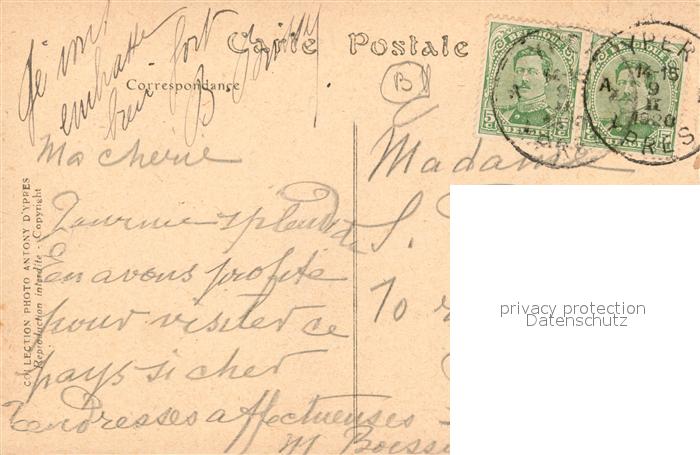 Je vous
embrasse
bien fort
Carte Postale
Correspondance
B
Ma cherie
Madame
Journée splendide
En avons profité
pour visiter ce
pays si cher
Tendresses affectueuses
S.
10
COLLECTION PHOTO ANTONY D'YPRES
Reproduction interdite - Copyright
YPER
14-15
A 9
II
1920
YPRES
BELGIQUE
BELGIE
privacy protection
Datenschutz